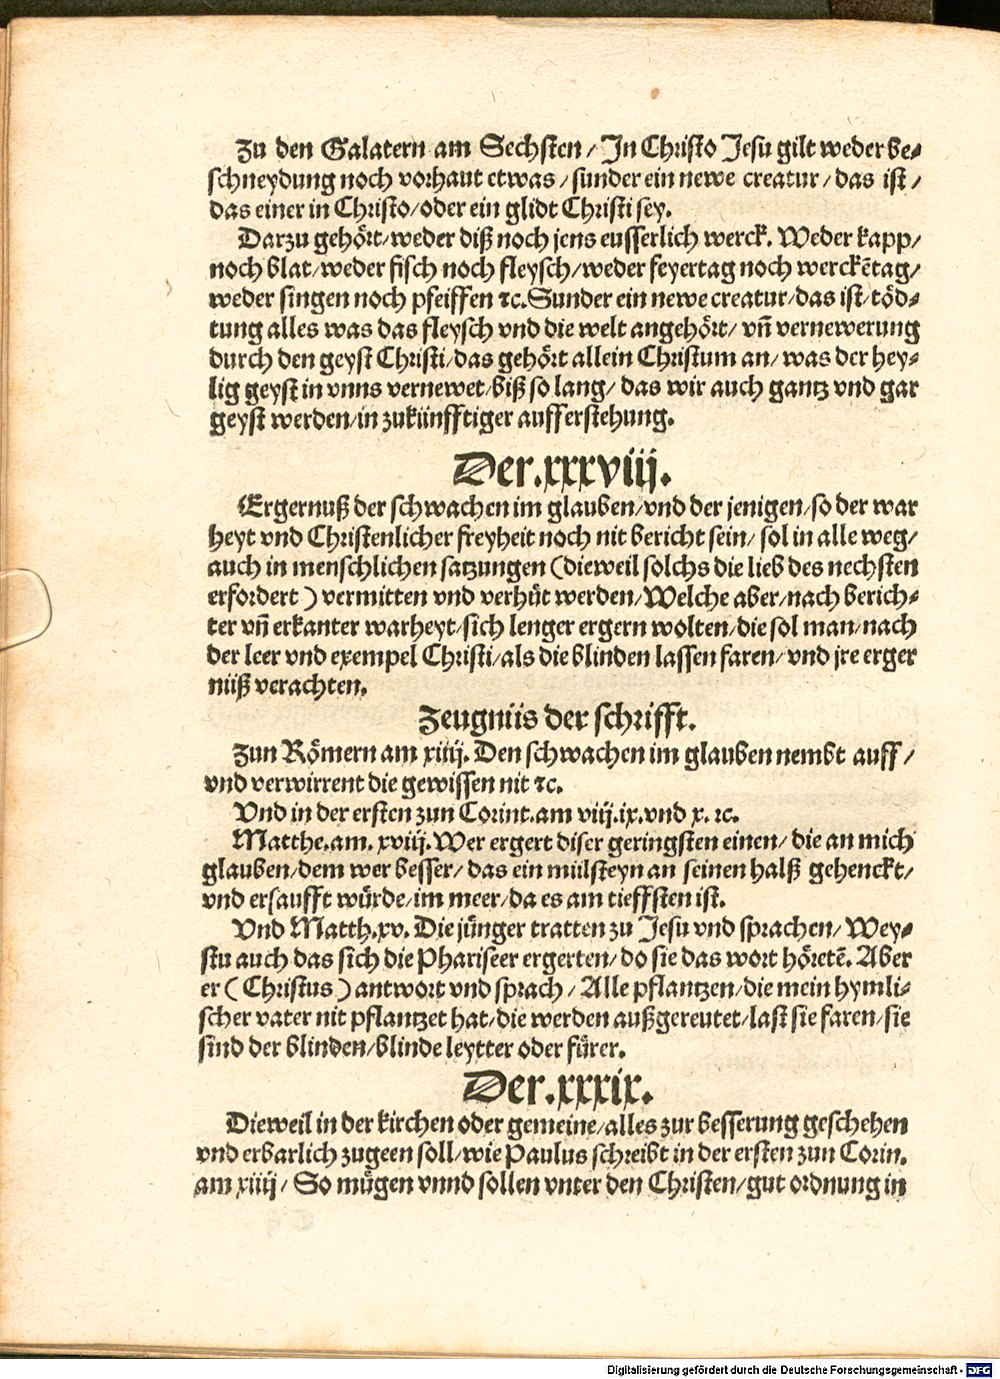 Zu den Galatern am Sechsten / In Christo Jesu gilt weder be⸗
schneydung noch vorhaut etwas / sunder ein newe creatur / das ist /
das einer in Christo / oder ein glidt Christi sey.
Darzu gehört / weder diß noch jens eusserlich werck. Weder kapp /
noch blat / weder fisch noch fleysch / weder feyertag noch werckētag /
weder singen noch pfeiffen ꝛc. Sunder ein newe creatur / das ist / töd⸗
tung alles was das fleysch vnd die welt angehört / vñ vernewerung
durch den geyst Christi / das gehört allein Christum an / was der hey⸗
lig geyst in vnns vernewet / biß so lang / das wir auch gantz vnd gar
geyst werden / in zukünfftiger aufferstehung.
Der .xxxviij.
Ergernuß der schwachen im glauben / vnd der jenigen / so der war
heyt vnd Christenlicher freyheit noch nit bericht sein / sol in alle weg /
auch in menschlichen satzungen (dieweil solchs die lieb des nechsten
erfordert) vermitten vnd verhüt werden / Welche aber / nach berich⸗
ter vñ erkanter warheyt / sich lenger ergern wolten / die sol man / nach
der leer vnd exempel Christi / als die blinden lassen faren / vnd jre erger
nüß verachten.
Zeugnüs der schrifft.
Zun Römern am xiiij. Den schwachen im glauben nembt auff /
vnd verwirrent die gewissen nit ꝛc.
Vnd in der ersten zun Corint. am viij. ix. vnd x. ꝛc.
Matthe. am. xviij. Wer ergert diser geringsten einen / die an mich
glauben / dem wer besser / das ein mülsteyn an seinen halß gehenckt /
vnd ersaufft würde / im meer / da es am tieffsten ist.
Vnd Matth. xv. Die jünger tratten zu Jesu vnd sprachen / Wey⸗
stu auch das sich die Phariseer ergerten / do sie das wort höretē. Aber
er (Christus) antwort vnd sprach / Alle pflantzen / die mein hymli⸗
scher vater nit pflantzet hat / die werden außgereutet / last sie faren / sie
sind der blinden / blinde leytter oder fürer.
Der .xxxix.
Dieweil in der kirchen oder gemeine / alles zur besserung geschehen
vnd erbarlich zugeen soll / wie Paulus schreibt in der ersten zun Corin.
am xiiij / So mügen vnnd sollen vnter den Christen / gut ordnung in
Digitalisierung gefördert durch die Deutsche Forschungsgemeinschaft - DFG